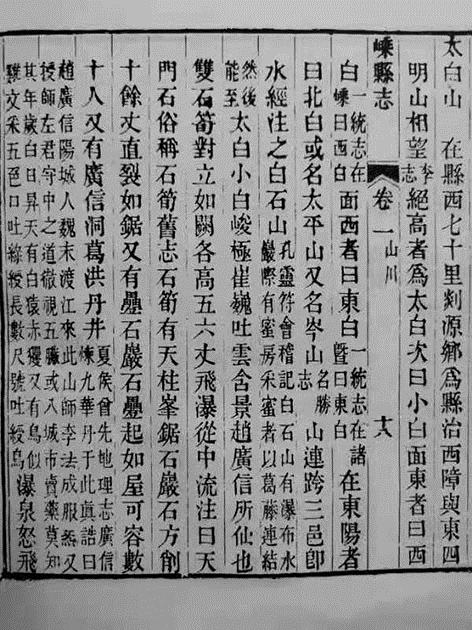 太白山 在縣西七十里剡源鄉爲縣治西障與東四
明山相望李志絕高者爲太白次曰小白面東者曰西
嵊縣志 卷一 山川 十八
白一統志在嵊曰西白面西者曰東白一統志在諸暨曰東白在東陽者
曰北白或名太平山又名岑山名勝志山連跨三邑卽
水經注之白石山孔靈符會稽記白石山有瀑布水巖際有蜜房采蜜者以葛藤連結
然後能至太白小白峻極崔巍吐雲含景趙廣信所仙也
雙石筍對立如闕各高五六丈飛瀑從中流注曰天
門石俗稱石筍舊志石筍有天柱峯鋸石巖石方削
十餘丈直裂如鋸又有疊石巖石疊起如屋可容數
十人又有廣信洞葛洪丹井夏侯曾先地理志廣信煉九華丹于此真誥曰
趙廣信陽城人魏末渡江來此山師李法成服氣又授師左君守中之道徹視五臟或入城市賣藥莫知
其年歲白日昇天有白猿赤玃又有鳥似雞文采五色口吐綠綬長數尺號吐綬鳥瀑泉怒飛